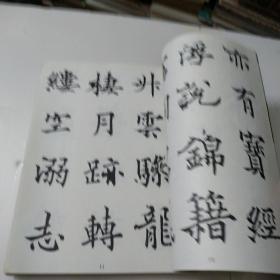 亦有寶經
浮說錦籍
雲驂龍
棲月跡轉
縷空溺志
11